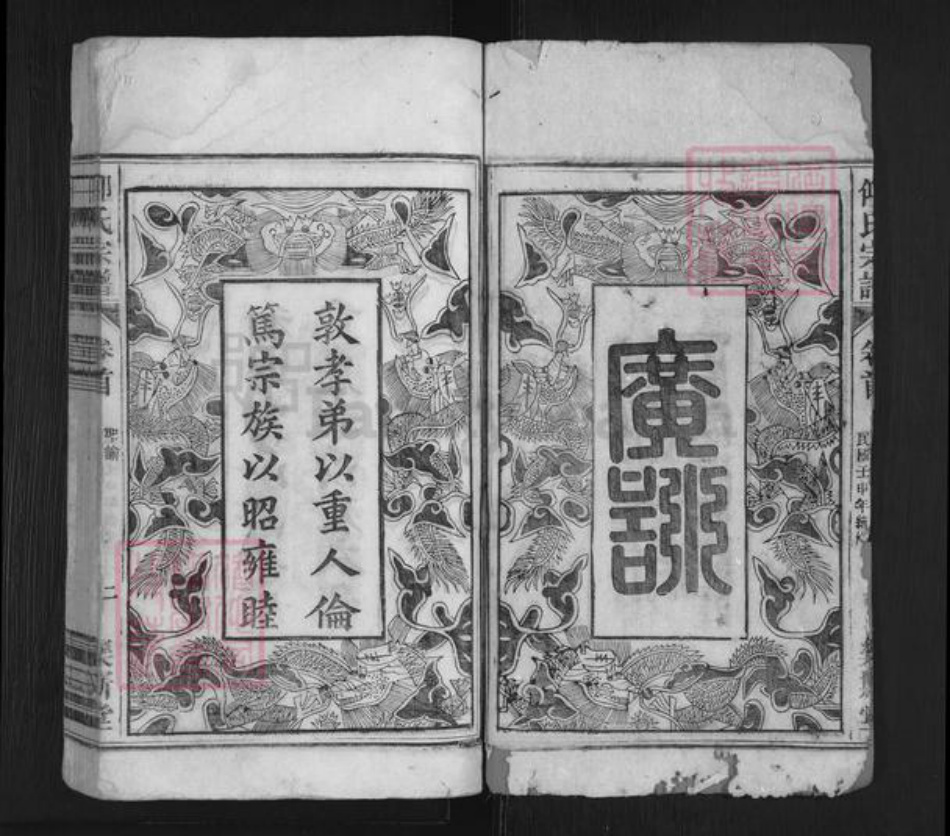 氏宗譜
卷首
民國壬申年續修
堂
廣訓
敦孝弟以重人倫
篤宗族以昭雍睦
氏宗譜
卷首
聖諭
二
堂